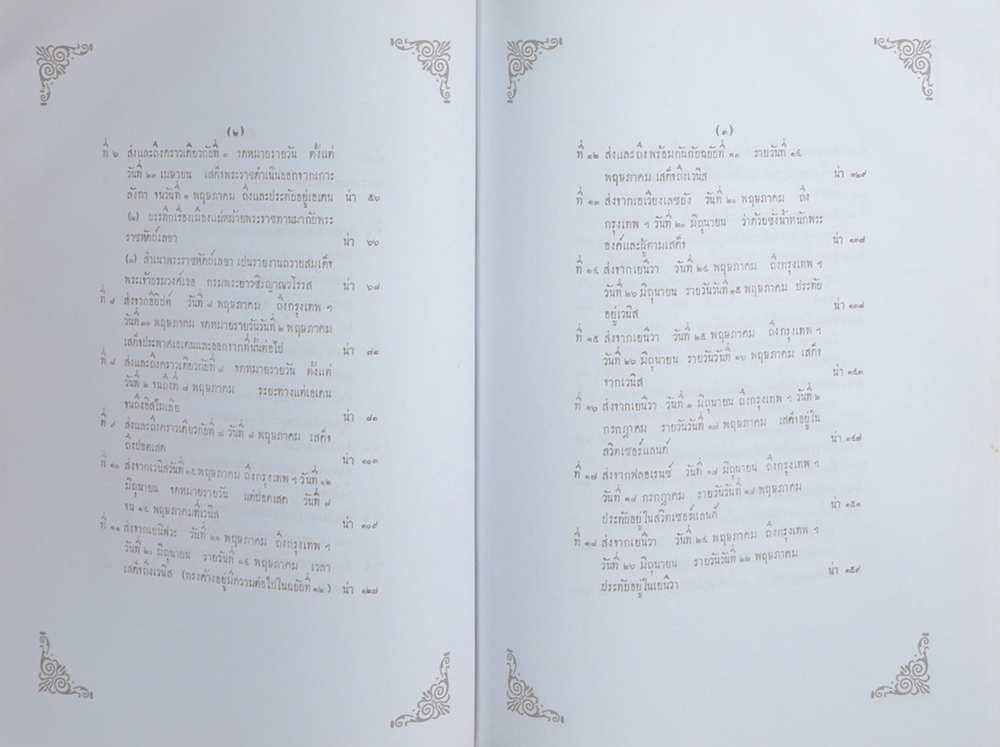 (๒)
ที่ ๖ ส่งและถึงคราวเดียวกับที่ ๓ จดหมายรายวัน ตั้งแต่
วันที่ ๒๓ เมษายน เสด็จพระราชดำเนินออกจากเกาะ
ลังกา จนวันที่ ๑ พฤษภาคม ถึงและประทับอยู่เอเดน น่า ๕๖
(๒) บรรทึกเรื่องเมืองแม่หม้ายพระราชทานมากับพระ
ราชหัตถ์เลขา น่า ๖๐
(๓) สำเนาพระราชหัตถ์เลขา เปนรายงานถวายสมเด็จ
พระเจ้าบรมวงศ์เธอ กรมพระยาวชิรญาณวโรรส น่า ๖๗
ที่ ๗ ส่งจากอิยิปต์ วันที่ ๘ พฤษภาคม ถึงกรุงเทพ ฯ
วันที่ ๓๑ พฤษภาคม จดหมายรายวันวันที่ ๒ พฤษภาคม
เสด็จประพาศเอเดนและออกจากที่นั้นต่อไป น่า
ที่ ๘ ส่งและถึงคราวเดียวกับที่ ๗ จดหมายรายวัน ตั้งแต่
วันที่ ๒ จนถึงที่ ๗ พฤษภาคม ระยะทางแต่เอเดน
จนถึงอิสไมเลีย น่า
ที่ ๙ ส่งและถึงคราวเดียวกับที่ ๗ วันที่ ๘ พฤษภาคม เสด็จ
ถึงปอตเสด น่า ๑๐๓
ที่ ๑๐ ส่งจากเวนิสวันที่ ๑๕ พฤษภาคม ถึงกรุงเทพ ฯ วันที่ ๑๒
มิถุนายน จดหมายรายวัน แต่ปอตเสด วันที่ ๘
จน ๑๔ พฤษภาคมที่เวนิส น่า ๑๐๙
ที่ ๑๑ ส่งจากเยนิฟวะ วันที่ ๒๑ พฤษภาคม ถึงกรุงเทพ ฯ
วันที่ ๒๐ มิถุนายน รายวันที่ ๑๔ พฤษภาคม เวลา
เสด็จถึงเวนิส (ทรงค้างอยู่มีความต่อไปในฉบับที่ ๑๒) น่า ๑๒๗
(๓)
ที่ ๑๒ ส่งและถึงพร้อมกันกับฉบับที่ ๑๑ รายวันที่ ๑๔
พฤษภาคม เสด็จถึงเวนิส น่า ๑๒๙
ที่ ๑๓ ส่งจากเอเวียงเลซบัง วันที่ ๒๐ พฤษภาคม ถึง
กรุงเทพ ฯ วันที่ ๒๐ มิถุนายน ว่าด้วยชั่งน้ำหนักพระ
องค์และผู้ตามเสด็จ น่า ๑๓๗
ที่ ๑๔ ส่งจากเยนิวา วันที่ ๒๔ พฤษภาคม ถึงกรุงเทพ ฯ
วันที่ ๒๖ มิถุนายน รายวันวันที่ ๑๕ พฤษภาคม ประทับ
อยู่เวนิส น่า ๑๓๘
ที่ ๑๕ ส่งจากเยนิวา วันที่ ๒๕ พฤษภาคม ถึงกรุงเทพ ฯ
วันที่ ๒๖ มิถุนายน รายวันวันที่ ๑๖ พฤษภาคม เสด็จ
จากเวนิส น่า ๑๔๓
ที่ ๑๖ ส่งจากเยนิวา วันที่ ๑ มิถุนายน ถึงกรุงเทพ ฯ วันที่ ๒
กรกฎาคม รายวันวันที่ ๑๗ พฤษภาคม เสด็จอยู่ใน
สวิตเซอร์แลนด์ น่า ๑๔๗
ที่ ๑๗ ส่งจากฟลอเรนซ์ วันที่ ๑๗ มิถุนายน ถึงกรุงเทพ ฯ
วันที่ ๑๗ กรกฎาคม รายวันวันที่ ๑๘ พฤษภาคม
ประทับอยู่ในสวิตเซอร์แลนด์ น่า ๑๕๑
ที่ ๑๘ ส่งจากเยนิวา วันที่ ๒๔ พฤษภาคม ถึงกรุงเทพ ฯ
วันที่ ๒๖ มิถุนายน รายวันวันที่ ๒๒ พฤษภาคม
ประทับอยู่ในเยนิวา น่า ๑๕๙